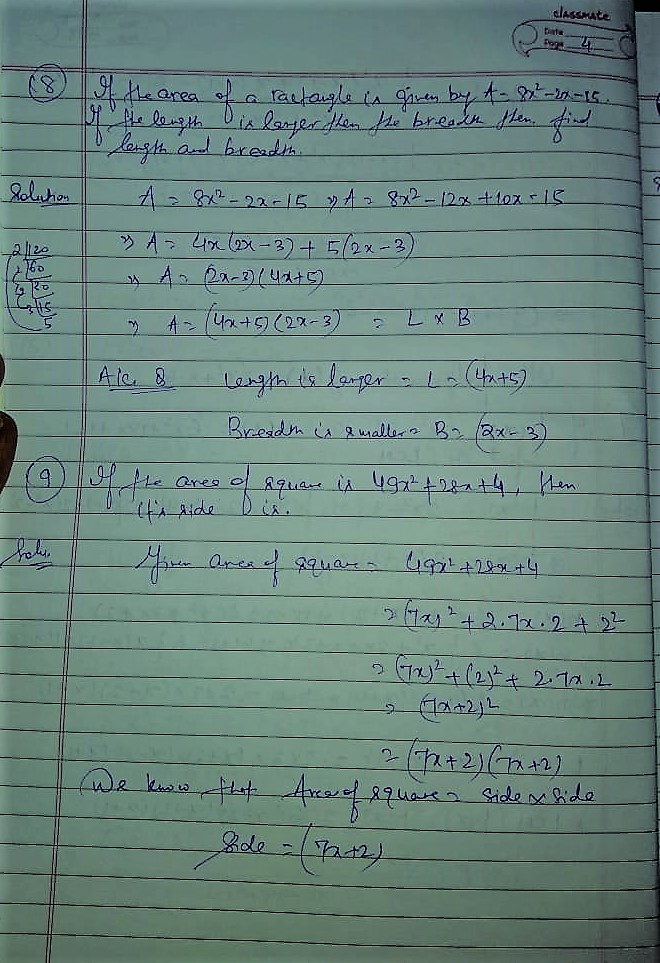 classmate
Date
Page 4
(8) If the area of a ractangle is given by A = 8x² - 2x - 15.
If the length is larger then the breadth then find
length and breadth.
Solution A = 8x² - 2x - 15 ⇒ A = 8x² - 12x + 10x - 15
⇒ A = 4x(2x - 3) + 5(2x - 3)
2|120
2|60
⇒ A = (2x - 3)(4x + 5)
3|15
5
⇒ A = (4x + 5)(2x - 3) = L × B
A/c. Q Length is larger = L = (4x + 5)
Breadth is smaller = B = (2x - 3)
(9) If the area of square is 49x² + 28x + 4, then
it's side is.
Solu. Given area of square = 49x² + 28x + 4
= (7x)² + 2.7x.2 + 2²
= (7x)² + (2)² + 2.7x.2
= (7x + 2)²
= (7x + 2)(7x + 2)
We know that Area of square = side × side
Side = (7x + 2)